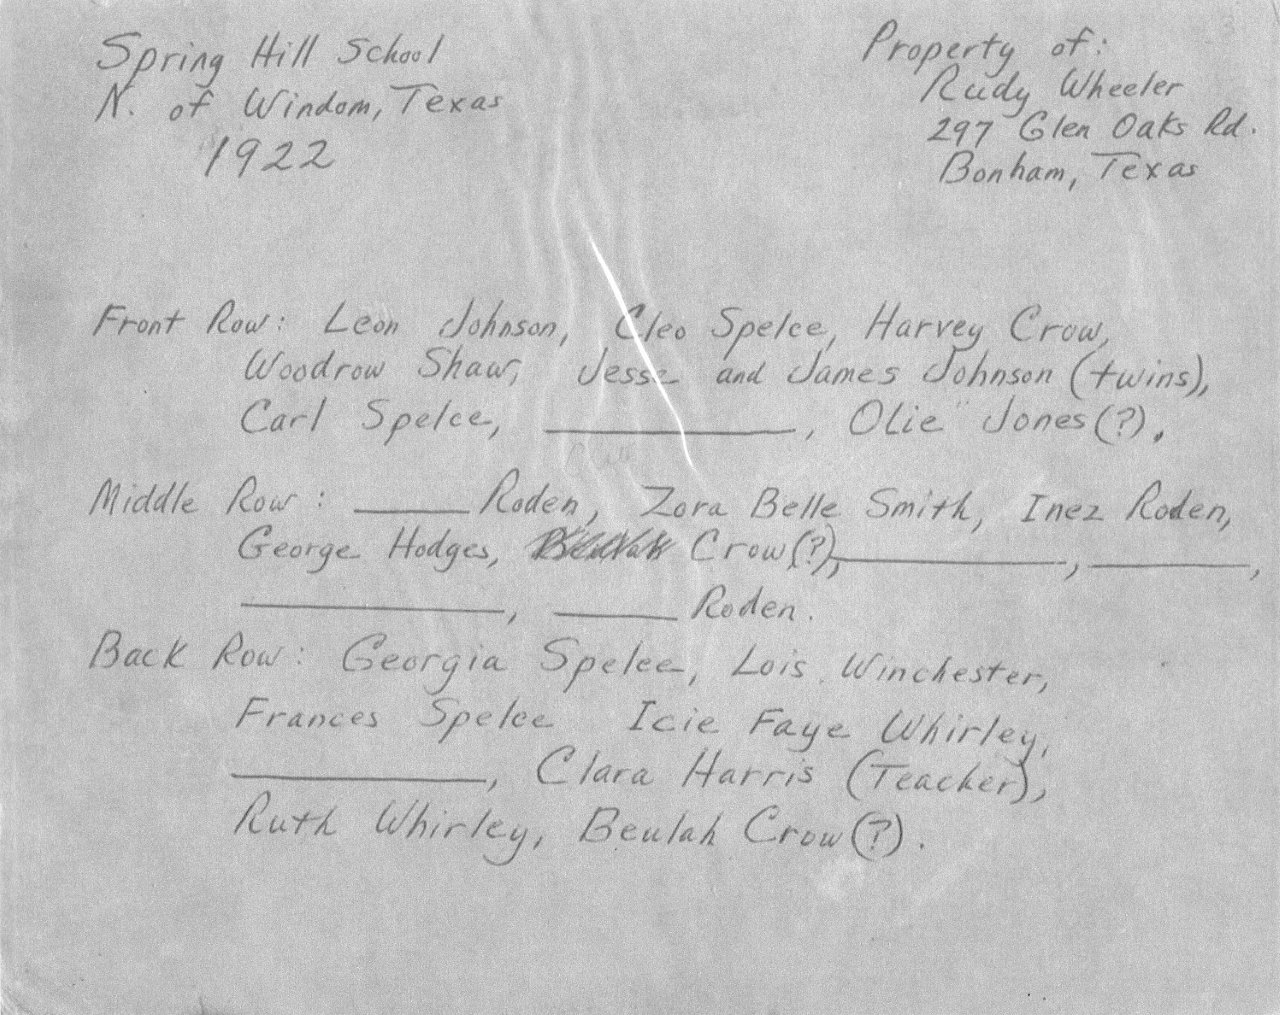 Spring Hill School
N. of Windom, Texas
1922
Property of:
Rudy Wheeler
297 Glen Oaks Rd.
Bonham, Texas
Front Row: Leon Johnson, Cleo Spelce, Harvey Crow,
Woodrow Shaw, Jesse and James Johnson (twins),
Carl Spelce, ________, Olie Jones (?).
Middle Row: ____ Roden, Zora Belle Smith, Inez Roden,
George Hodges, Crow (?), ________, ______,
________, ____ Roden.
Back Row: Georgia Spelce, Lois Winchester,
Frances Spelce Icie Faye Whirley,
________, Clara Harris (Teacher),
Ruth Whirley, Beulah Crow (?).